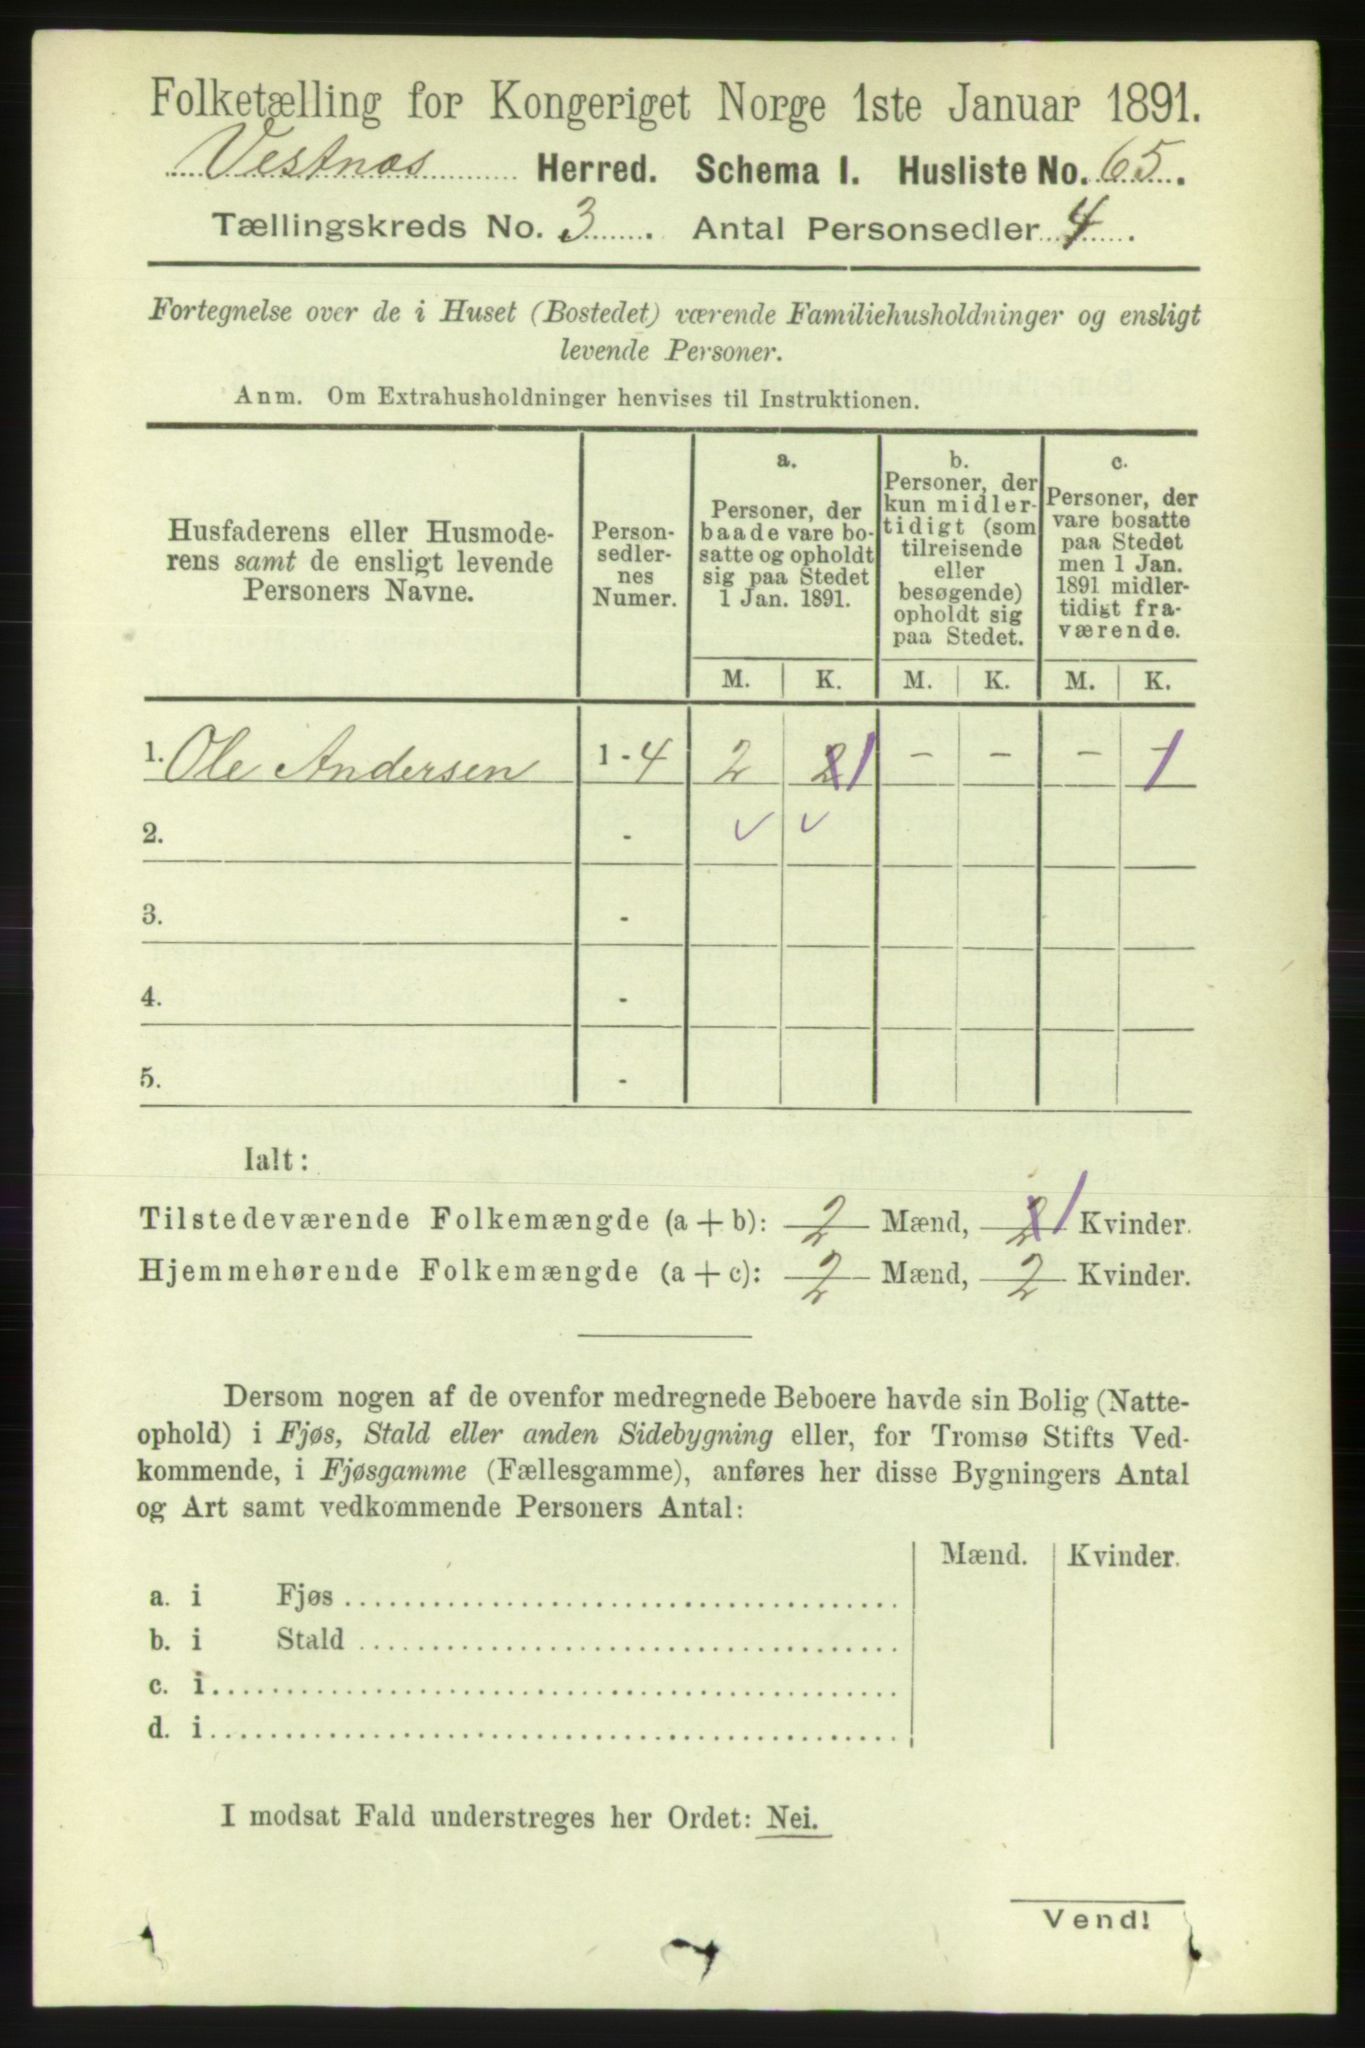 Folketælling for Kongeriget Norge 1ste Januar 1891.
Vestnes Herred. Schema I. Husliste No. 65.
Tællingskreds No. 3. Antal Personsedler 4.
Fortegnelse over de i Huset (Bostedet) værende Familiehusholdninger og ensligt
levende Personer.
Anm. Om Extrahusholdninger henvises til Instruktionen.
Husfaderens eller Husmode-
rens samt de ensligt levende
Personers Navne.
Person-
sedler-
nes
Numer.
a.
Personer, der
baade vare bo-
satte og opholdt
sig paa Stedet
1 Jan. 1891.
b.
Personer, der
kun midler-
tidigt (som
tilreisende
eller
besøgende)
opholdt sig
paa Stedet.
c.
Personer, der
vare bosatte
paa Stedet
men 1 Jan.
1891 midler-
tidigt fra-
værende.
M. K. M. K. M. K.
1. Ole Andersen 1 - 4 2 2 1 - - - 1
2. - ✓ ✓
3. -
4. -
5. -
Ialt:
Tilstedeværende Folkemængde (a + b): 2 Mænd, 2 1 Kvinder.
Hjemmehørende Folkemængde (a + c): 2 Mænd, 2 Kvinder.
Dersom nogen af de ovenfor medregnede Beboere havde sin Bolig (Natte-
ophold) i Fjøs, Stald eller anden Sidebygning eller, for Tromsø Stifts Ved-
kommende, i Fjøsgamme (Fællesgamme), anføres her disse Bygningers Antal
og Art samt vedkommende Personers Antal:
Mænd. Kvinder.
a. i Fjøs
b. i Stald
c. i
d. i
I modsat Fald understreges her Ordet: Nei.
Vend!